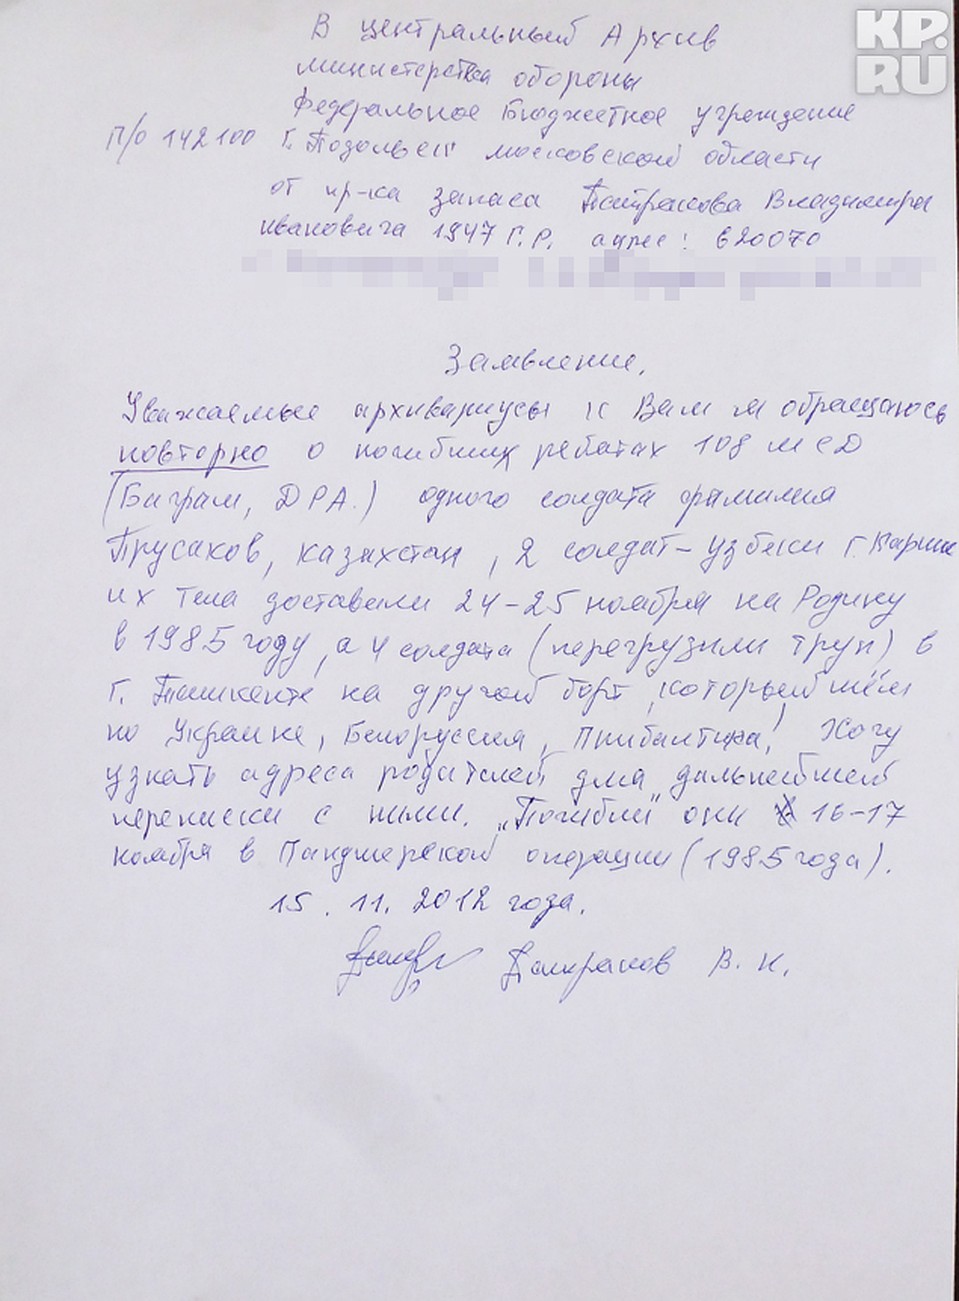 KP.
RU
В центральный Архив
министерства обороны
Федеральное Бюджетное учреждение
П/О 142100 Г. Подольск московской области
от пр-ка запаса Патракова Владимира
Ивановича 1947 Г.Р. адрес: 620070
Заявление.
Уважаемые архивариусы к Вам я обращаюсь
повторно о погибших ребятах 108 МСД
(Баграм, ДРА.) одного солдата фамилия
Прусаков, Казахстан, 2 солдат-узбеки г. Карши
их тела доставили 24-25 ноября на Родину
в 1985 году, а 4 солдата (перегрузили труп) в
г. Ташкенте на другой борт, который шёл
по Украине, Белоруссия, Прибалтика! Хочу
узнать адреса родителей для дальнейшей
переписки с ними. "Погибли" они 16-17
ноября в Панджерской операции (1985 года).
15. 11. 2012 года.
Патраков В. И.